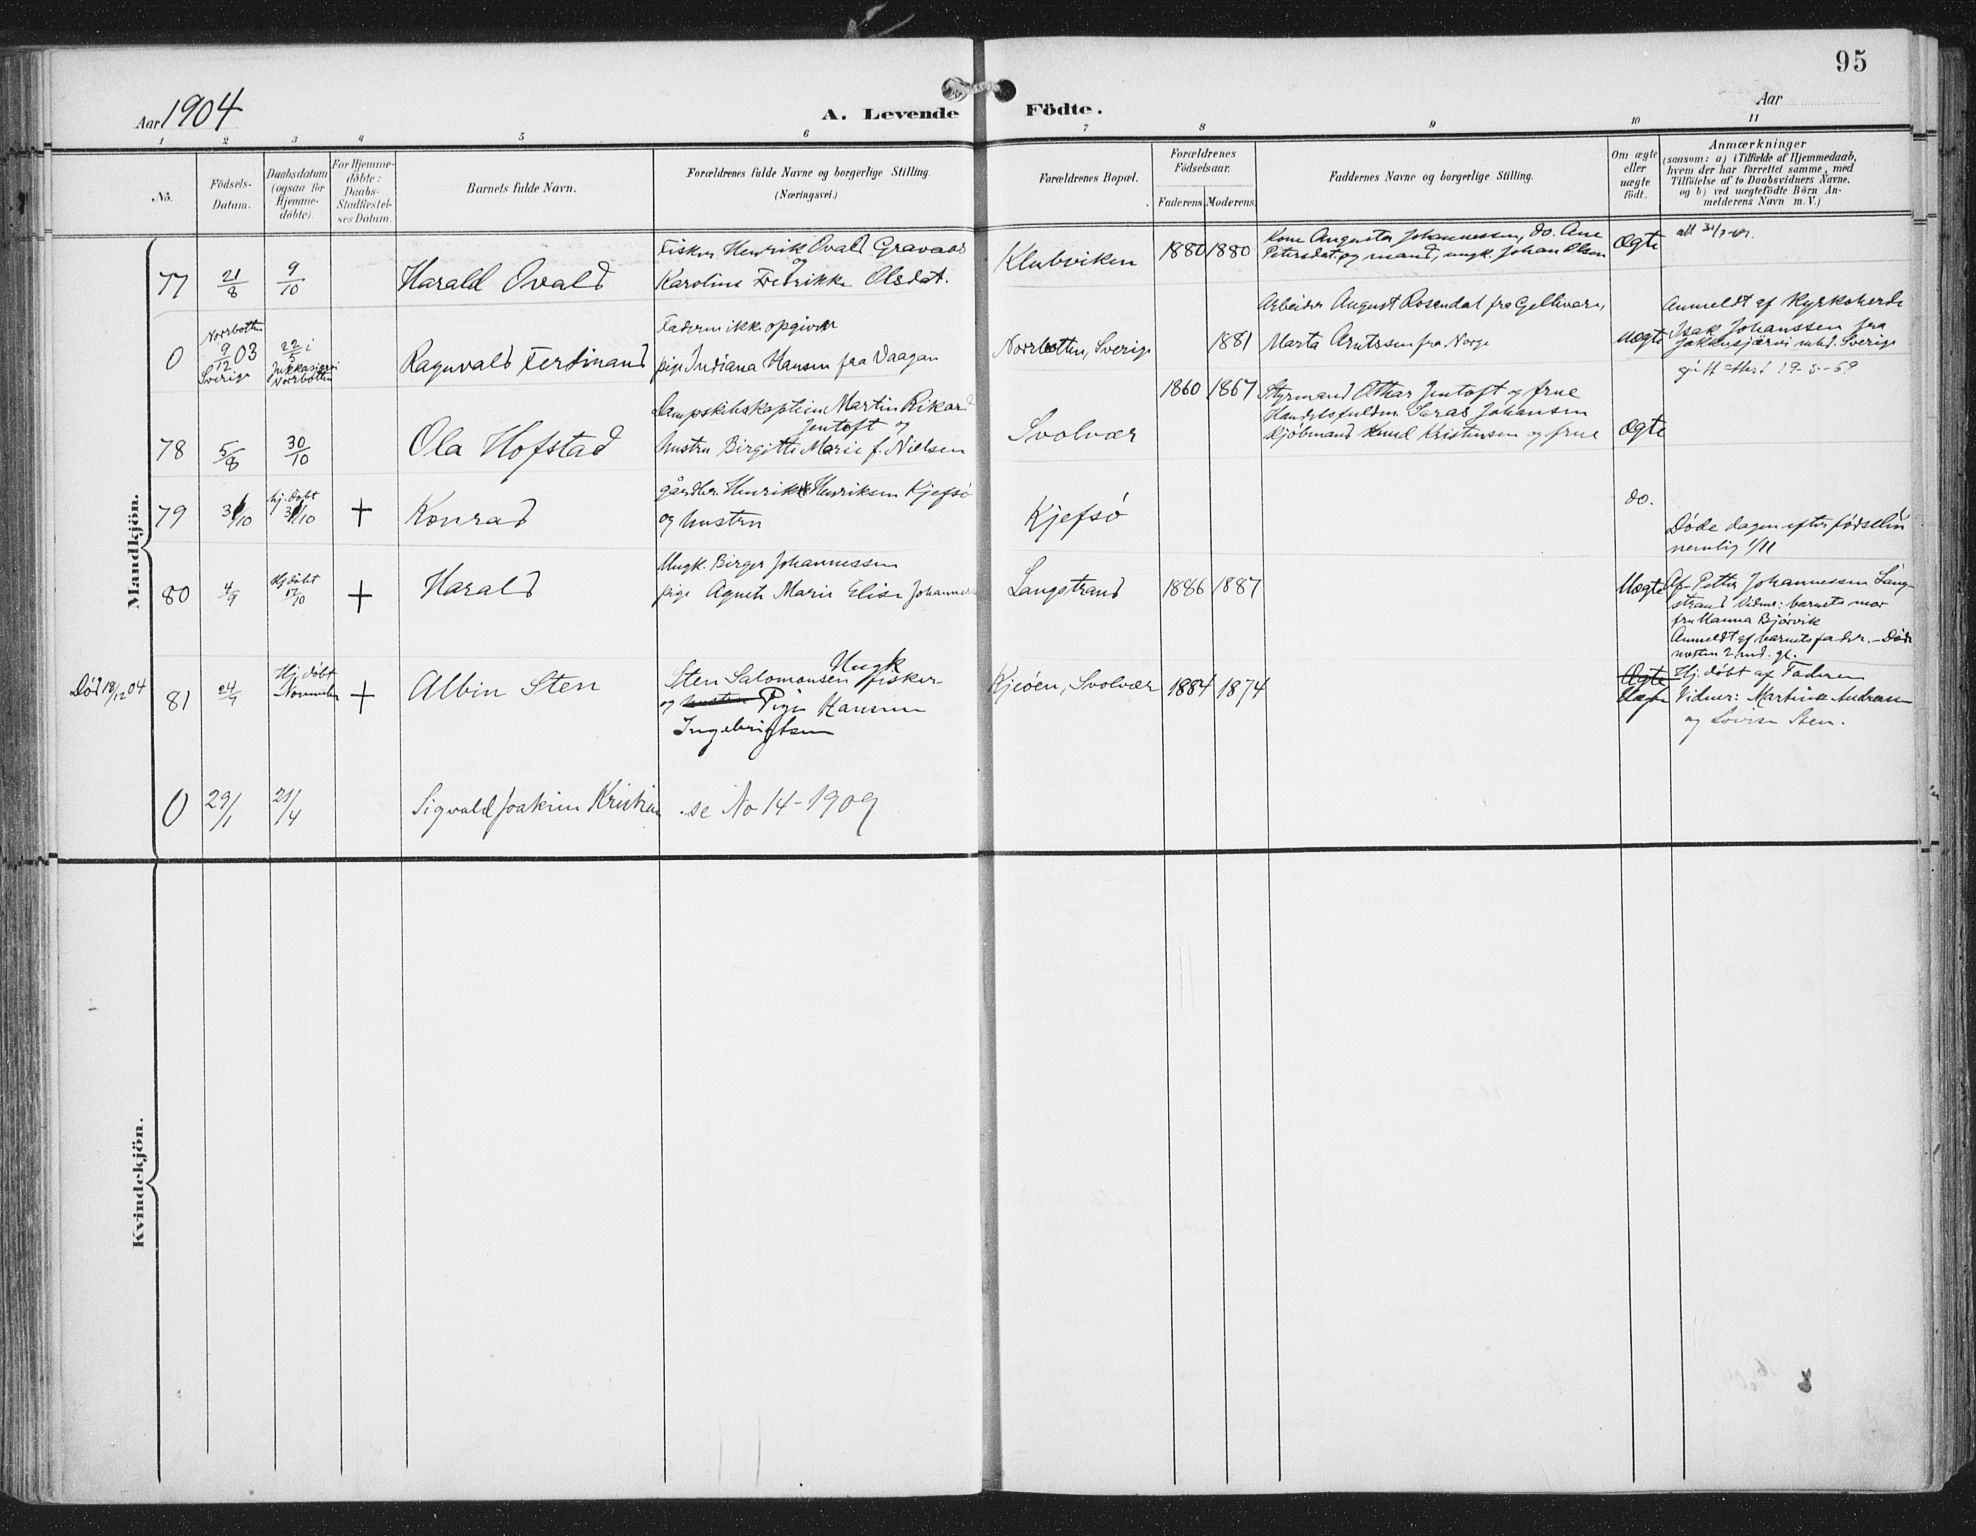 95
Aar 1904
A. Levende Födte.
Aar
1 2 3 4 5 6 7 8 9 10 11
No.
Födsels-
Datum.
Daabsdatum
(ogsaa for
Hjemme-
döbte).
For Hjemme-
döbte:
Daabs-
Stadfæstel-
ses Datum.
Barnets fulde Navn.
Forældrenes fulde Navne og borgerlige Stilling.
(Næringsvei.)
Forældrenes Bopæl.
Forældrenes
Födselsaar.
Faderens. Moderens.
Faddernes Navne og borgerlige Stilling.
Om ægte
eller
uægte
födt.
Anmærkninger
(saasom: a) i Tilfælde af Hjemmedaab,
hvem der har forrettet samme, med
Tilföielse af to Daabsvidners Navne.
og b) ved uægtefödte Börn An-
melderens Navn m. V.)
Mandkjön.
77
21/8
9/10
Harald Ovald
Fisker Henrik Ovald Gravaas
og
Karoline Fredrikke Olsdat.
Klubviken
1880 1880
Kone Augusta Johannessen, do. Ane
Petersdat. og mand, ungk. Johan Olsen
Ægte
0
Norrbotten
9/12 03
Sverige
22/5 i
Jukkasjervi
Norrbotten
Ragnvald Ferdinand
Faderen ikke opgiven
pige Indiana Hansen fra Vaagan
Norrbotten, Sverige
1881
Arbeider August Rosendal fra Gellivare,
Marta Arntssen fra Norge
Uægte
Anmeldt af Kyrkoherde
Isak Johanssen fra
Jukkasjärvi Sverige
78
5/8
30/10
Ola Hofstad
Dampskibskaptein Martin Rikard
Jentoft og
hustru Birgitte Marie f. Nielsen
Svolvær
1860 1867
Styrmand Othar Jentoft og frue
Handelsfuldm. Johansen
Kjøbmand Knud Kristensen og frue
Ægte
79
31/10
hj. døbt
31/10
+
Konrad
gårdbr. Henrik Henriksen Kjefsø
og hustru
Kjefsø
do.
Døde dagen efter fødselen
nemlig 1/11
80
4/9
Hj døbt
17/10
+
Harald
Ungk. Birger Johannessen
pige Agnete Marie Elise Johannes
Langstrand
1886 1887
Uægte
Af Petter Johannessen Lang-
strand Vidner: barnets mor
fru Hanna Bjørvik
Anmeldt af barnets fader. – Døde
næsten 2 md. gl.
Død 18/12 04
81
24/7
Hj. døbt
November
+
Albin Sten
Ungk
Sten Salomonsen fisker
og hustru Pige Hansine
Ingebrigtsen
Kjeøen, Svolvær
1884 1874
Ægte
Uægte
Hj. døbt af Faderen
Vidner: Martine Andreassen
og Lovise Sten.
0
29/1
21/4
Sigvald Joakim Kristian
se No 14 - 1909
Kvindekjön.